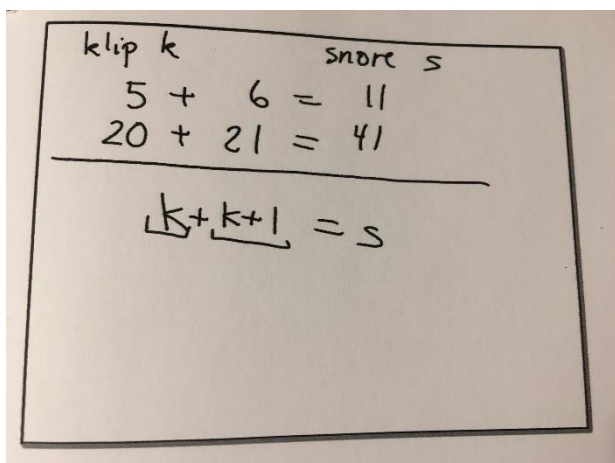 klip k snore s
5 + 6 = 11
20 + 21 = 41
k+k+1 = s